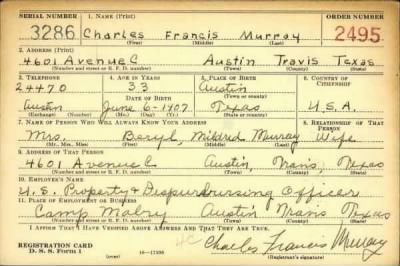 SERIAL NUMBER 1. NAME (Print) ORDER NUMBER
3286 Charles Francis Murray 2495
(First) (Middle) (Last)
2. ADDRESS (Print)
4601 Avenue C Austin Travis Texas
(Number and street or R. F. D. number) (Town) (County) (State)
3. TELEPHONE 4. AGE IN YEARS 5. PLACE OF BIRTH 6. COUNTRY OF CITIZENSHIP
24470 33 Austin
DATE OF BIRTH (Town or county)
Austin June 6-1907 Texas U.S.A.
(Exchange) (Number) (Mo.) (Day) (Yr.) (State or country)
7. NAME OF PERSON WHO WILL ALWAYS KNOW YOUR ADDRESS 8. RELATIONSHIP OF THAT PERSON
Mrs. Beryl Mildred Murray Wife
(Mr., Mrs., Miss) (First) (Middle) (Last)
9. ADDRESS OF THAT PERSON
4601 Avenue C Austin, Travis, Texas
(Number and street or R. F. D. number) (Town) (County) (State)
10. EMPLOYER'S NAME
U.S. Property & Officer
11. PLACE OF EMPLOYMENT OR BUSINESS
Camp Mabry Austin Travis Texas
(Number and street or R. F. D. number) (Town) (County) (State)
I AFFIRM THAT I HAVE VERIFIED ABOVE ANSWERS AND THAT THEY ARE TRUE.
REGISTRATION CARD
D. S. S. Form 1 (over) Charles Francis Murray
(Registrant's signature)